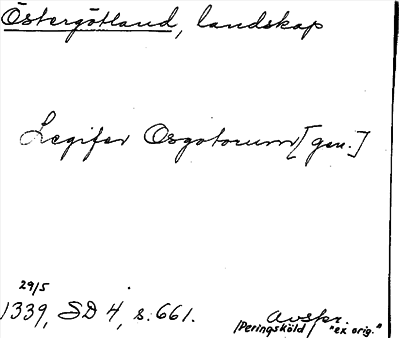 Östergötland, landskap
Legifer Osgotorum [gen.]
29/5
1339, SD 4, s. 661.
avskr.
/Peringsköld/ "ex orig."